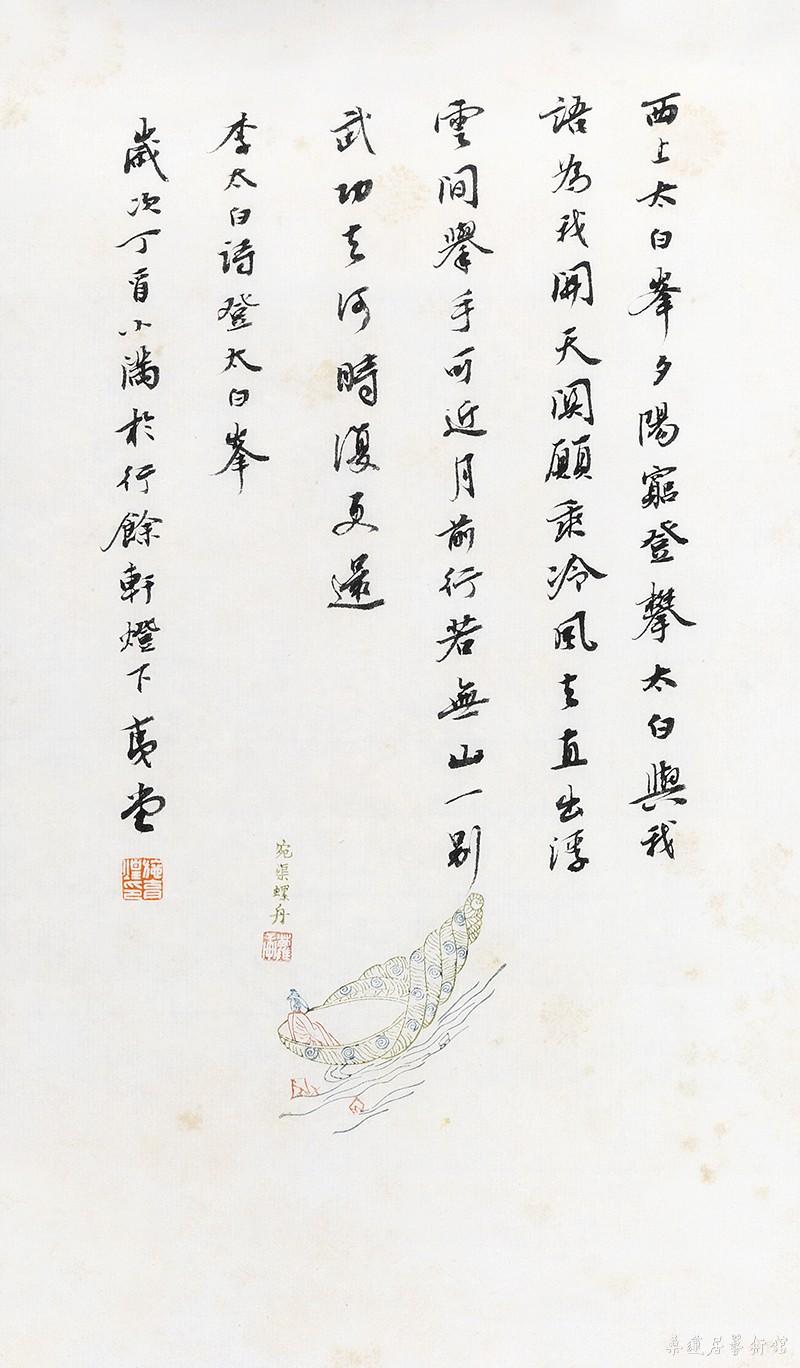 西上太白峯夕陽窮登攀太白與我
語為我開天關願乘冷風去直出浮
雲間舉手可近月前行若無山一別
武功去何時復更還
李太白詩登太白峯
歲次丁酉小滿於行餘軒燈下夷堂
宛渠螺舟
桑蓮居藝術館